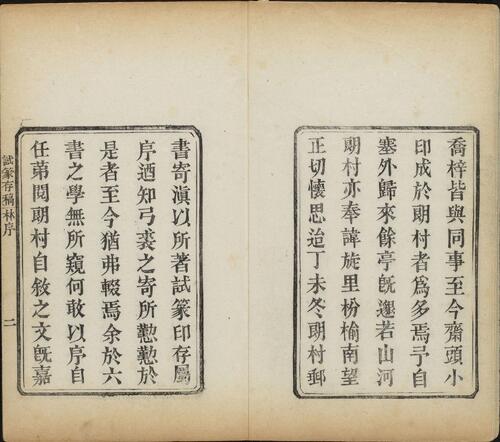 喬梓皆與同事至今齋頭小
印成於明村者爲多焉予自
塞外歸來餘亭旣邈若山河
明村亦奉諱旋里枌榆南望
正切懷思迨丁未冬明村郵
書寄滇以所著試篆印存屬
序迺知弓裘之寄所懃懃於
是者至今猶弗輟焉余於六
書之學無所窺何敢以序自
任弟閱明村自敘之文旣嘉
試篆存稿林序
二